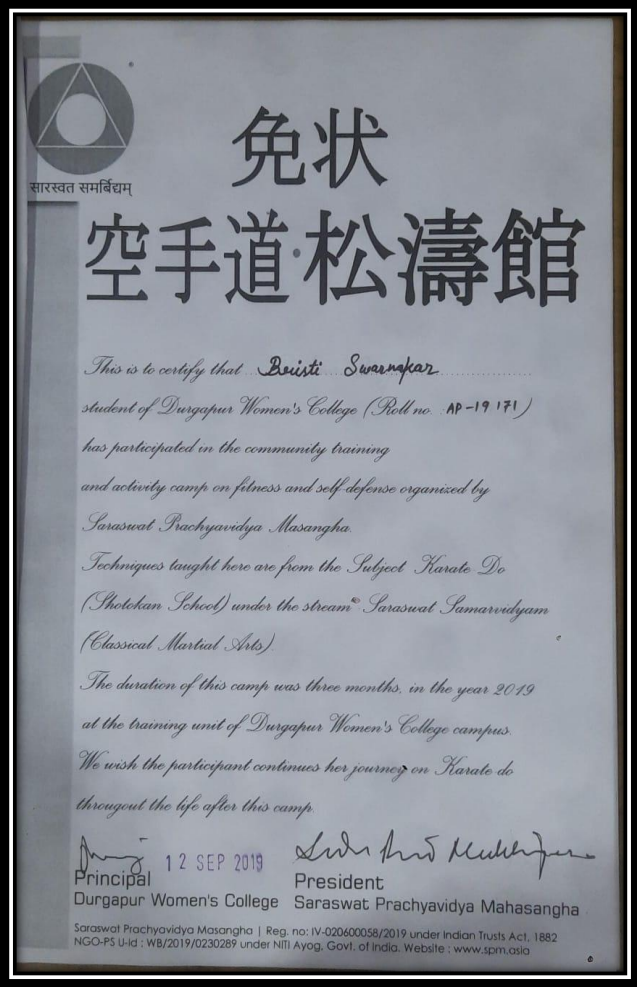 सारस्वत समर्बिद्यम्
免状
空手道・松濤館
This is to certify that Bristi Swarnakar
student of Durgapur Women's College (Roll no. AP-19 171)
has participated in the community training
and activity camp on fitness and self-defense organized by
Saraswat Prachyavidya Masangha.
Techniques taught here are from the Subject Karate Do
(Shotokan School) under the stream Saraswat Samarvidyam
(Classical Martial Arts).
The duration of this camp was three months, in the year 2019
at the training unit of Durgapur Women's College campus.
We wish the participant continues her journey on Karate do
througout the life after this camp.
12 SEP 2019
Principal
Durgapur Women's College
President
Saraswat Prachyavidya Mahasangha
Saraswat Prachyavidya Masangha | Reg. no: IV-020600058/2019 under Indian Trusts Act, 1882
NGO-PS U-Id : WB/2019/0230289 under NITI Ayog, Govt. of India. Website : www.spm.asia